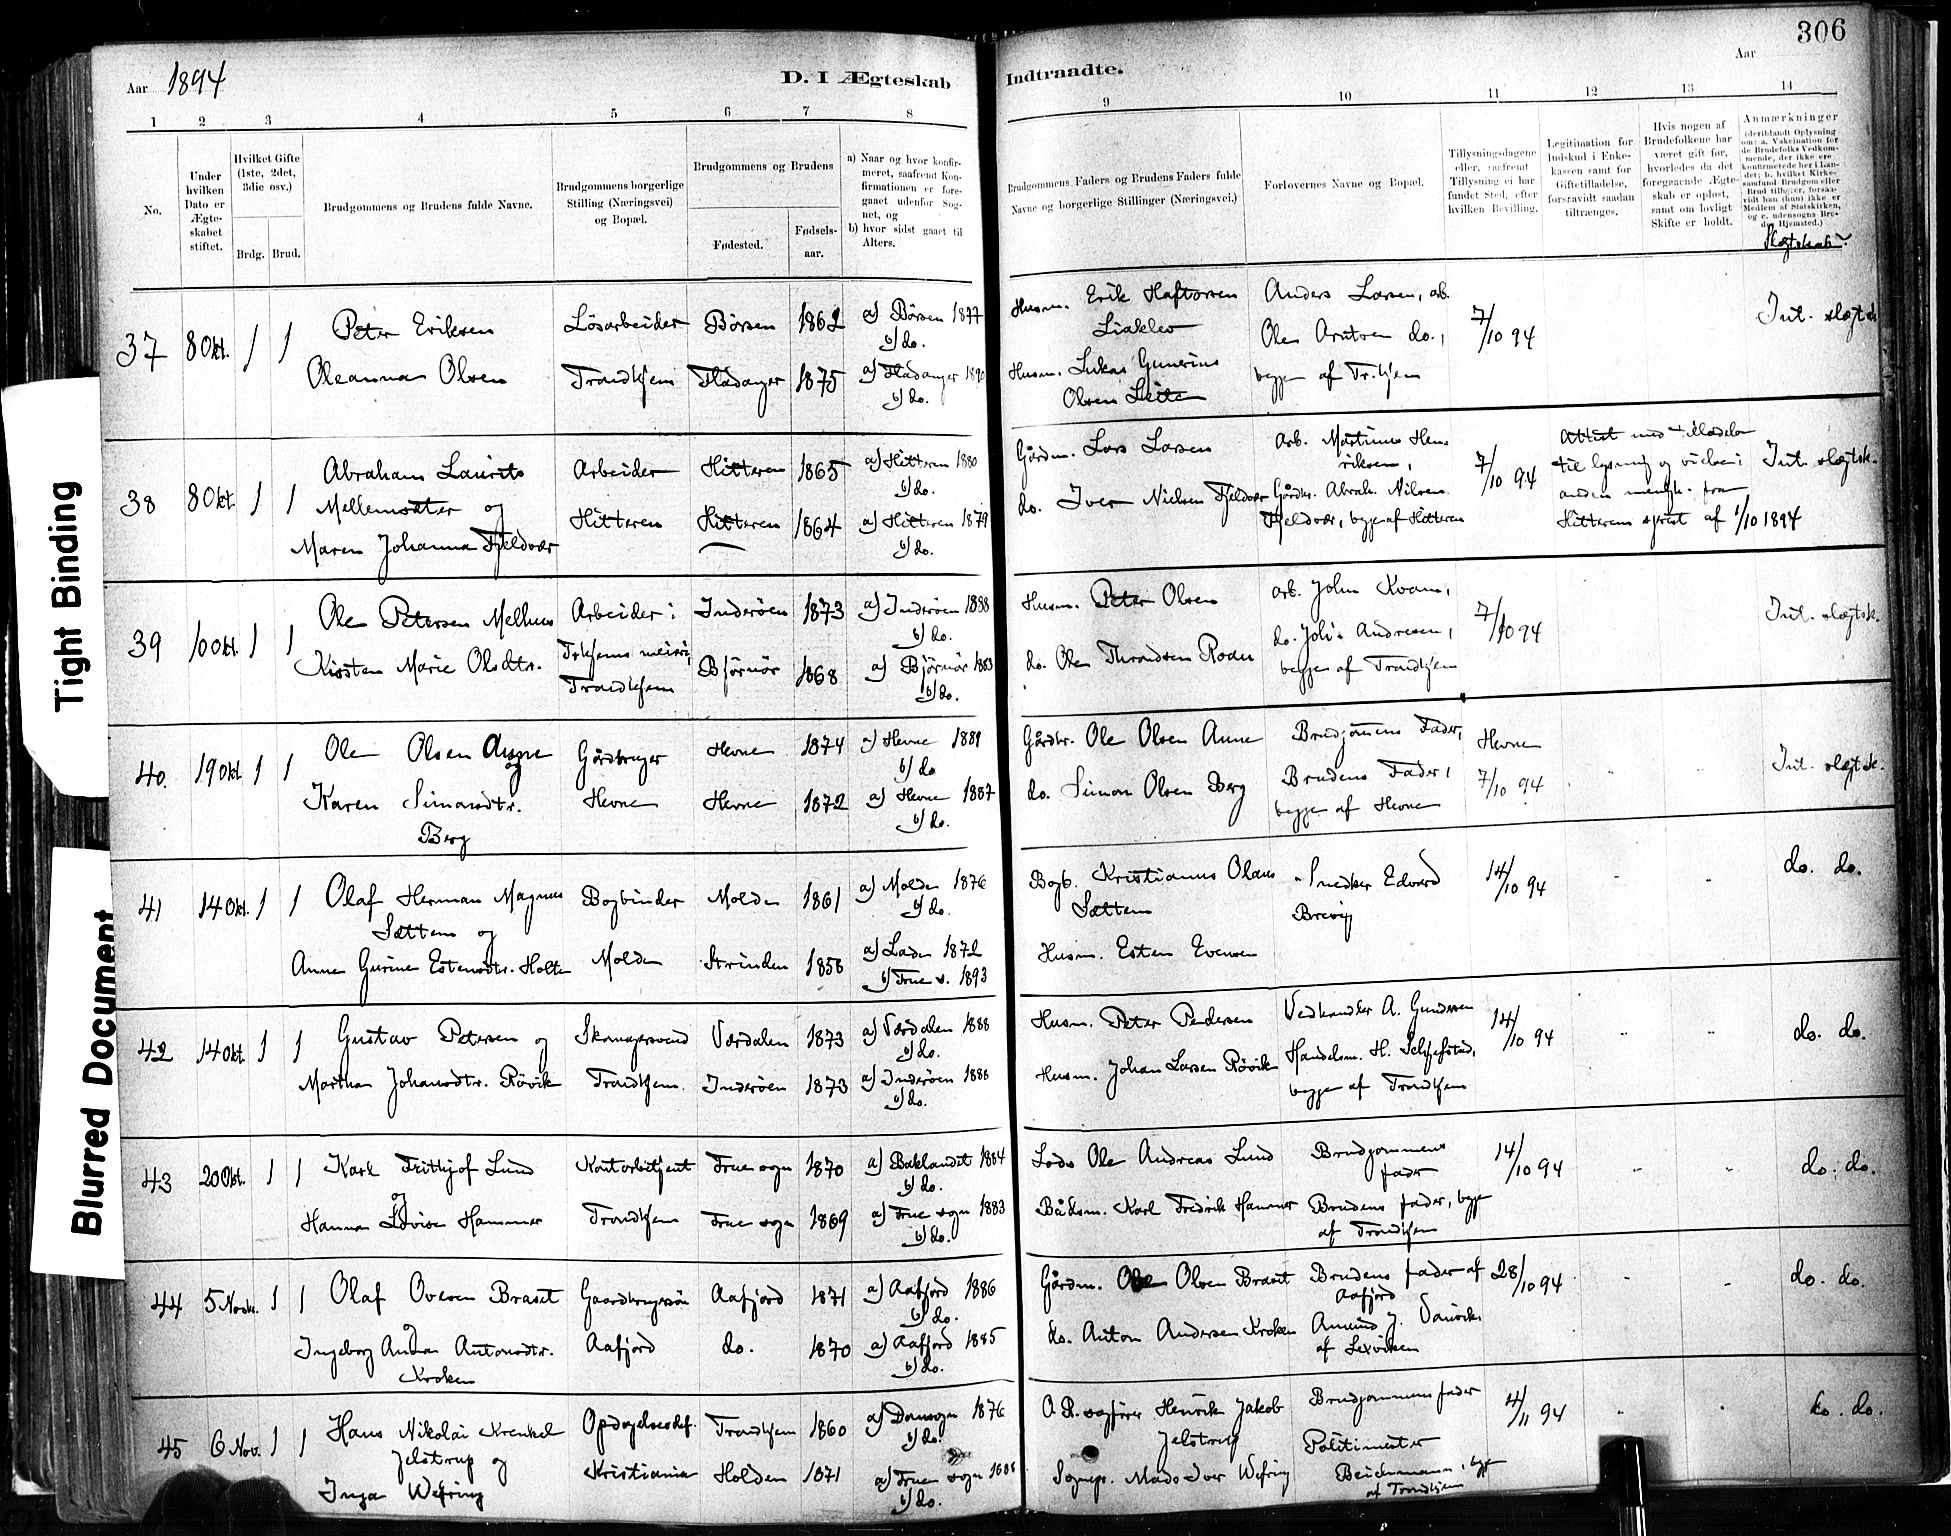 306
Aar 1894
D. I Ægteskab
Indtraadte.
Aar
1 2 3 4 5 6 7 8
9 10 11 12 13 14
No.
Under hvilken Dato er Ægteskabet stiftet.
Hvilket Gifte (1ste, 2det, 3die osv.)
Brdg. Brud.
Brudgommens og Brudens fulde Navne.
Brudgommens borgerlige Stilling (Næringsvei) og Bopæl.
Brudgommens og Brudens
Fødested. Fødselsaar.
a) Naar og hvor konfirmeret, saafremt Konfirmationen er foregaaet udenfor Sognet, og
b) hvor sidst gaaet til Alters.
Brudgommens Faders og Brudens Faders fulde Navne og borgerlige Stillinger (Næringsvei.)
Forlovernes Navne og Bopæl.
Tillysningsdagene eller, saafremt Tillysning ei har fundet Sted, efter hvilken Bevilling.
Legitimation for Indskud i Enkekassen samt for Giftetilladelse, forsaavidt saadan tiltrænges.
Hvis nogen af Brudefolkene har været gift før, hvorledes da det foregaaende Ægteskab er opløst, samt om lovligt Skifte er holdt.
Anmærkninger
(deriblandt Oplysning om: a. Vakcination for de Brudefolks Vedkommende, der ikke ere konfirmerede her i Landet; b. hvilket Kirkesamfund Brudgom eller Brud tilhører, forsaavidt han (hun) ikke er Medlem af Statskirken, og c. udensogns Brudes Hjemsted.)
Slægtskab?
37 8 Okt. 1 1 Peter Eriksen Løsarbeider Börsen 1862 a) Börsen 1877
b) do.
Oleanna Olsen Trondhjem Fladanger 1875 a) Fladanger 1890
b) do.
Husm. Erik Haftorsen Anders Larsen, arb. 7/10 94 Int. slægtsk.
Liaklev Ole Arntsen do.,
Husm. Lukas Gunerius begge af Tr.hjem
Olsen Leite
38 8 Okt. 1 1 Abraham Laurits Arbeider Hitteren 1865 a) Hitteren 1880
b) do.
Mellemsæter og
Maren Johanna Fjeldvær Hitteren Hitteren 1864 a) Hitteren 1879
b) do.
Gårdm. Lars Larsen Arb. Martinus Henriksen, 7/10 94 Attest med tilladelse Int. slægtsk.
til lysning og vielse i
do. Iver Nielsen Fjeldvær Gårdbr. Abrah. Nilsen anden menigh. fra
Fjeldvær, begge af Hitteren Hitterens sprest af 1/10 1894
39 10 Okt. 1 1 Ole Petersen Melhus Arbeider i Inderöen 1873 a) Inderöen 1888
b) do.
Kirsten Marie Olsdtr. Trhjems meieri, Björnör 1868 a) Björnör 1883
Trondhjem b) do.
Husm. Peter Olsen arb. John Kvam, 7/10 94 Int. slægtsk.
do. Ole Throndsen Roan do. Joh's Andresen,
begge af Trondhjem
40. 19 Okt. 1 1 Ole Olsen Aune Gårdbruger Hevne 1874 a) Hevne 1889
og b) do
Karen Simonsdtr. Hevne Hevne 1872 a) Hevne 1887
Berg b) do.
Gårdbr. Ole Olsen Aune Brudgommens Fader, Hevne Int. slægtsk.
do. Simon Olsen Berg Brudens Fader, 7/10 94
begge af Hevne
41 14 Okt. 1 1 Olaf Herman Magnus Bogbinder Molde 1861 a) Molde 1876
Sættem og b) do.
Anne Gurine Estensdtr. Holte Molde Strinden 1856 a) Lade 1872
b) Frue s. 1893
Bogb. Kristianus Olaus Snedker Edvard 14/10 94 do. do.
Sættem Brevig
Husm. Esten Evensen
42 14 Okt. 1 1 Gustav Petersen og Skomagersvend Værdalen 1873 a) Værdalen 1888
b) do.
Martha Johansdtr. Rövik Trondhjem. Inderöen 1873 a) Inderöen 1888
b) do.
Husm. Peter Pedersen Vedhandler A. Gundersen 14/10 94 do. do.
Husm. Johan Larsen Rövik Handelsm. H. Schjefstad,
begge af Trondhjem
43 20 Okt. 1 1 Karl Frithjof Lund Kontorbetjent Frue sogn 1870 a) Baklandet 1884
og b) do.
Hanna Lovise Hammer Trondhjem Frue sogn 1869 a) Frue sogn 1883
b) do.
Lods Ole Andreas Lund Brudgommens fader 14/10 94 do. do.
Bådsm. Karl Fredrik Hammer Brudens fader, begge
af Trondhjem
44 5 Novbr. 1 1 Olaf Ovesen Braset Gaardbrugersön Aafjord 1871 a) Aafjord 1886
og b) do.
Ingeborg Anna Antonsdtr. Aafjord do. 1870 a) Aafjord 1885
Kroken b) do.
Gårdm. Ove Olsen Braset Brudens fader af 28/10 94 do. do.
Aafjord
do. Anton Andersen Kroken Amund J.
af Lexviken
45 6 Nov. 1 1 Hans Nikolai Krenkel Opdagelsesbet. Trondhjem 1860 a) Domsogn 1876
Jelstrup og b) do.
Inga Wefring Kristiania Holden 1871 a) Frue sogn
b) do.
O. R. sagfører Henrik Jakob Brudgommens fader 4/11 94 do. do.
Jelstrup Politimester
Sognepr. Mads Iver Wefring Beichmann, bgge
af Trondhjem
Tight Binding
Blurred Document